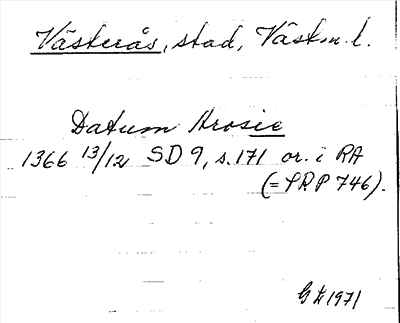 Västerås, stad, Västm. l.
Datum Arosie
1366 13/12 SD 9, s. 171 or. i RA
(= SRP 746).
1971